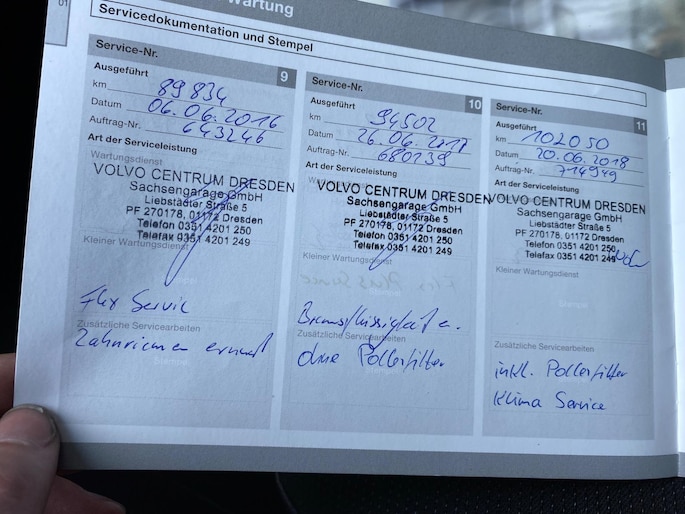 01
Wartung
Servicedokumentation und Stempel
Service-Nr. 9
Ausgeführt
km 89834
Datum 06.06.2016
Auftrag-Nr. 643246
Art der Serviceleistung
Wartungsdienst
VOLVO CENTRUM DRESDEN
Sachsengarage GmbH
Liebstädter Straße 5
PF 270178, 01172 Dresden
Telefon 0351 4201 250
Telefax 0351 4201 249
Kleiner Wartungsdienst
Flex Servic
Zusätzliche Servicearbeiten
Zahnriemen erneuert
Service-Nr. 10
Ausgeführt
km 94502
Datum 26.06.2017
Auftrag-Nr. 680139
Art der Serviceleistung
VOLVO CENTRUM DRESDEN
Sachsengarage GmbH
Liebstädter Straße 5
PF 270178, 01172 Dresden
Telefon 0351 4201 250
Telefax 0351 4201 249
Kleiner Wartungsdienst
Bremsflüssigkeit e.
Zusätzliche Servicearbeiten
ohne Pollenfilter
Service-Nr. 11
Ausgeführt
km 102050
Datum 20.06.2018
Auftrag-Nr. 714949
Art der Serviceleistung
VOLVO CENTRUM DRESDEN
Sachsengarage GmbH
Liebstädter Straße 5
PF 270178, 01172 Dresden
Telefon 0351 4201 250
Telefax 0351 4201 249
Kleiner Wartungsdienst
Zusätzliche Servicearbeiten
inkl. Pollenfilter
Klima Service